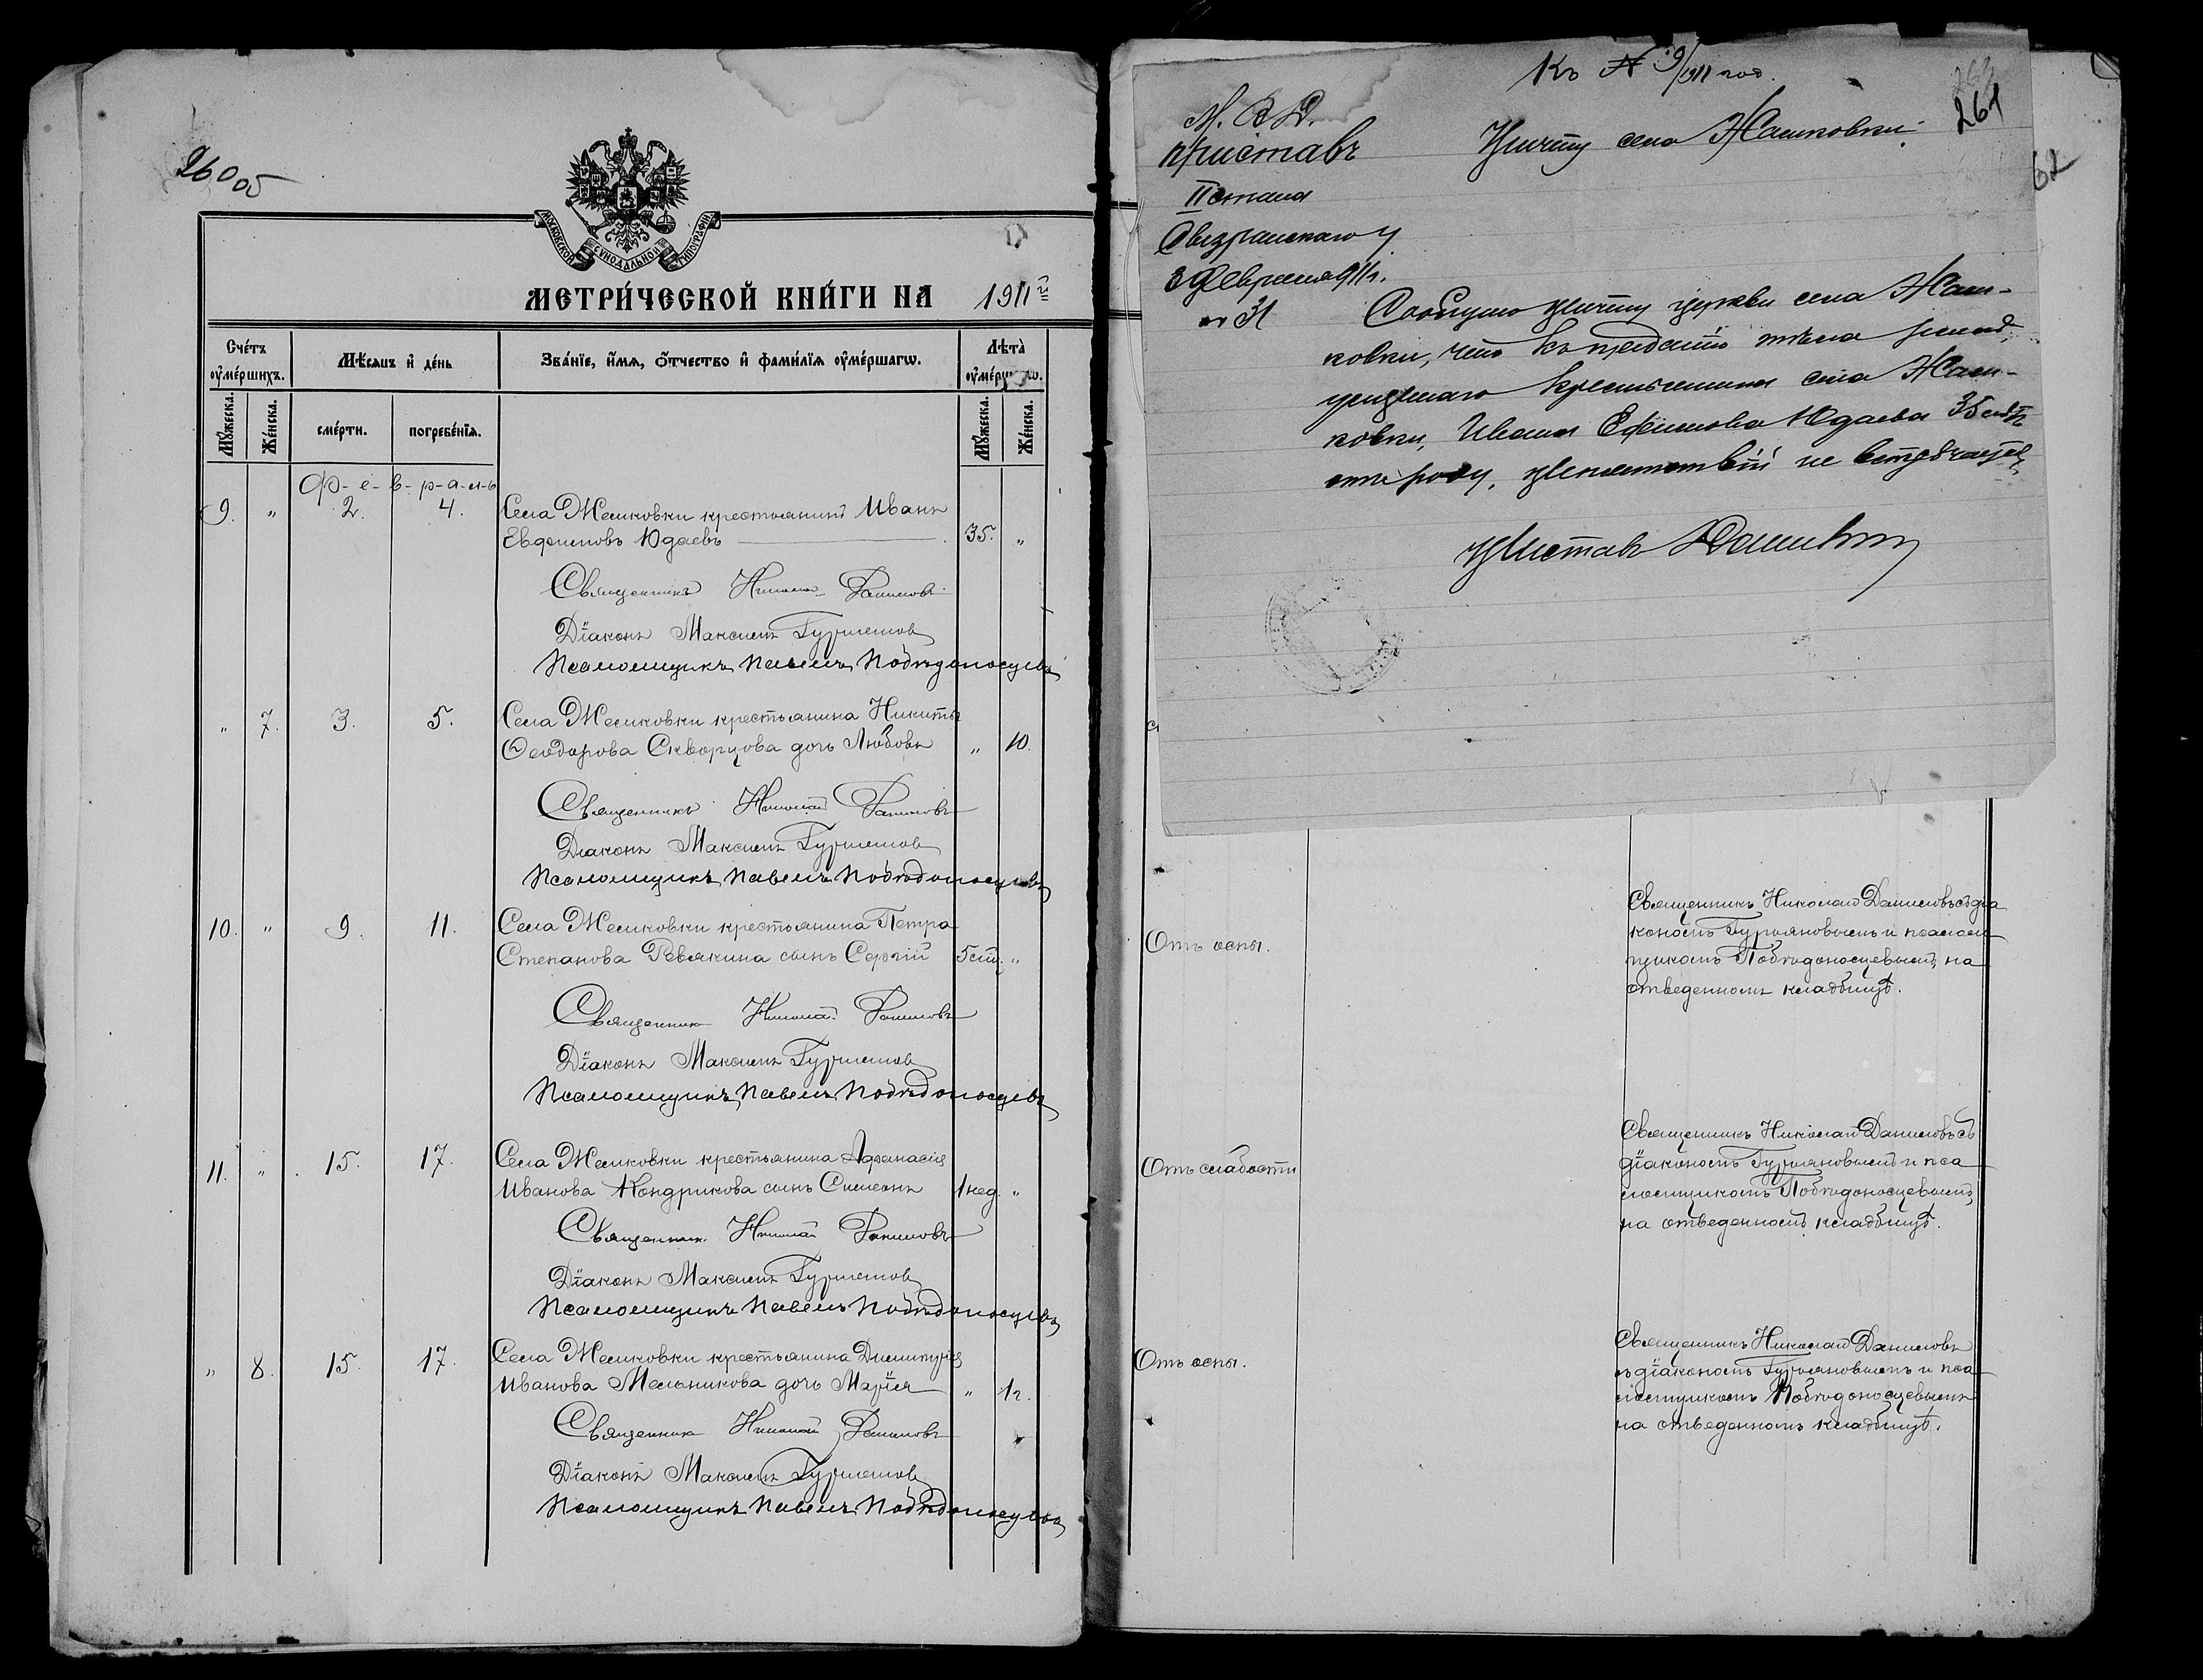 260 об
МОСКОВСКОЙ СѴНОДАЛЬНОЙ ТИПОГРАФІИ
МЕТРИ́ЧЕСКОЙ КНИ́ГИ НА 1911 й
Счéтъ оу҆мéршихъ.
Мѣ́сяцъ и҆ дéнь
Звáнїе, и҆́мѧ, ѻ҆́тчество и҆ фами́лїѧ оу҆мéршагѡ.
Лѣтà оу҆мéршагѡ.
Мꙋ́жеска.
Жéнска.
смéрти.
погребéнїѧ.
Мꙋ́жеска.
Жéнска.
Ф-е-в-р-а-л-ь
9. " 2. 4. Села Жемковки крестьянинъ Иванъ
Евфимовъ Юдаевъ 35. "
Священникъ Николай Даниловъ
Дїаконъ Максимъ Гурьяновъ
Псаломщикъ Павелъ Побѣдоносцевъ
" 7. 3. 5. Села Жемковки крестьянина Никиты
Ѳеодорова Скворцова дочь Любовь " 10.
Священникъ Николай Даниловъ
Діаконъ Максимъ Гурьяновъ
Псаломщикъ Павелъ Побѣдоносцевъ
10. " 9. 11. Села Жемковки крестьянина Петра
Степанова Ревякина сынъ Сергій "
Священникъ Николай Даниловъ
Дїаконъ Максимъ Гурьяновъ
Псаломщикъ Павелъ Побѣдоносцевъ
11. " 15. 17. Села Жемковки крестьянина Аѳанасія
Иванова Кондрикова сынъ Симеонъ 1 нед. "
Священникъ Николай Даниловъ
Дїаконъ Максимъ Гурьяновъ
Псаломщикъ Павелъ Побѣдоносцевъ
" 8. 15. 17. Села Жемковки крестьянина Димитрія
Иванова Мельникова дочь Марїя " 1 г.
Священникъ Николай Даниловъ
Дїаконъ Максимъ Гурьяновъ
Псаломщикъ Павелъ Побѣдоносцевъ
Къ № 9/1911 год.
261
62
М. В. Д.
Приставъ
II стана
Сызранскаго у
3 Февраля 1911 г.
№ 31
Причту села Жемковки.
Сообщаю причту церкви села Жем-
ковки, что къ преданію тѣла
умершаго крестьянина села Жем-
ковки, Ивана Ефимова Юдаева 35 лѣтъ
отъ роду, препятствій не встрѣчается
Приставъ
Отъ оспы.
Священникъ Николай Даниловъ съ діа
кономъ Гурьяновымъ и псалом
щикомъ Побѣдоносцевымъ, на
отведенномъ кладбищѣ.
Отъ слабости
Священникъ Николай Даниловъ съ
дїакономъ Гурьяновымъ и пса
ломщикомъ Побѣдоносцевымъ,
на отведенномъ кладбищѣ.
Отъ оспы.
Священникъ Николай Даниловъ
съ дїакономъ Гурьяновымъ и пса
ломщикомъ Побѣдоносцевымъ
на отведенномъ кладбищѣ.